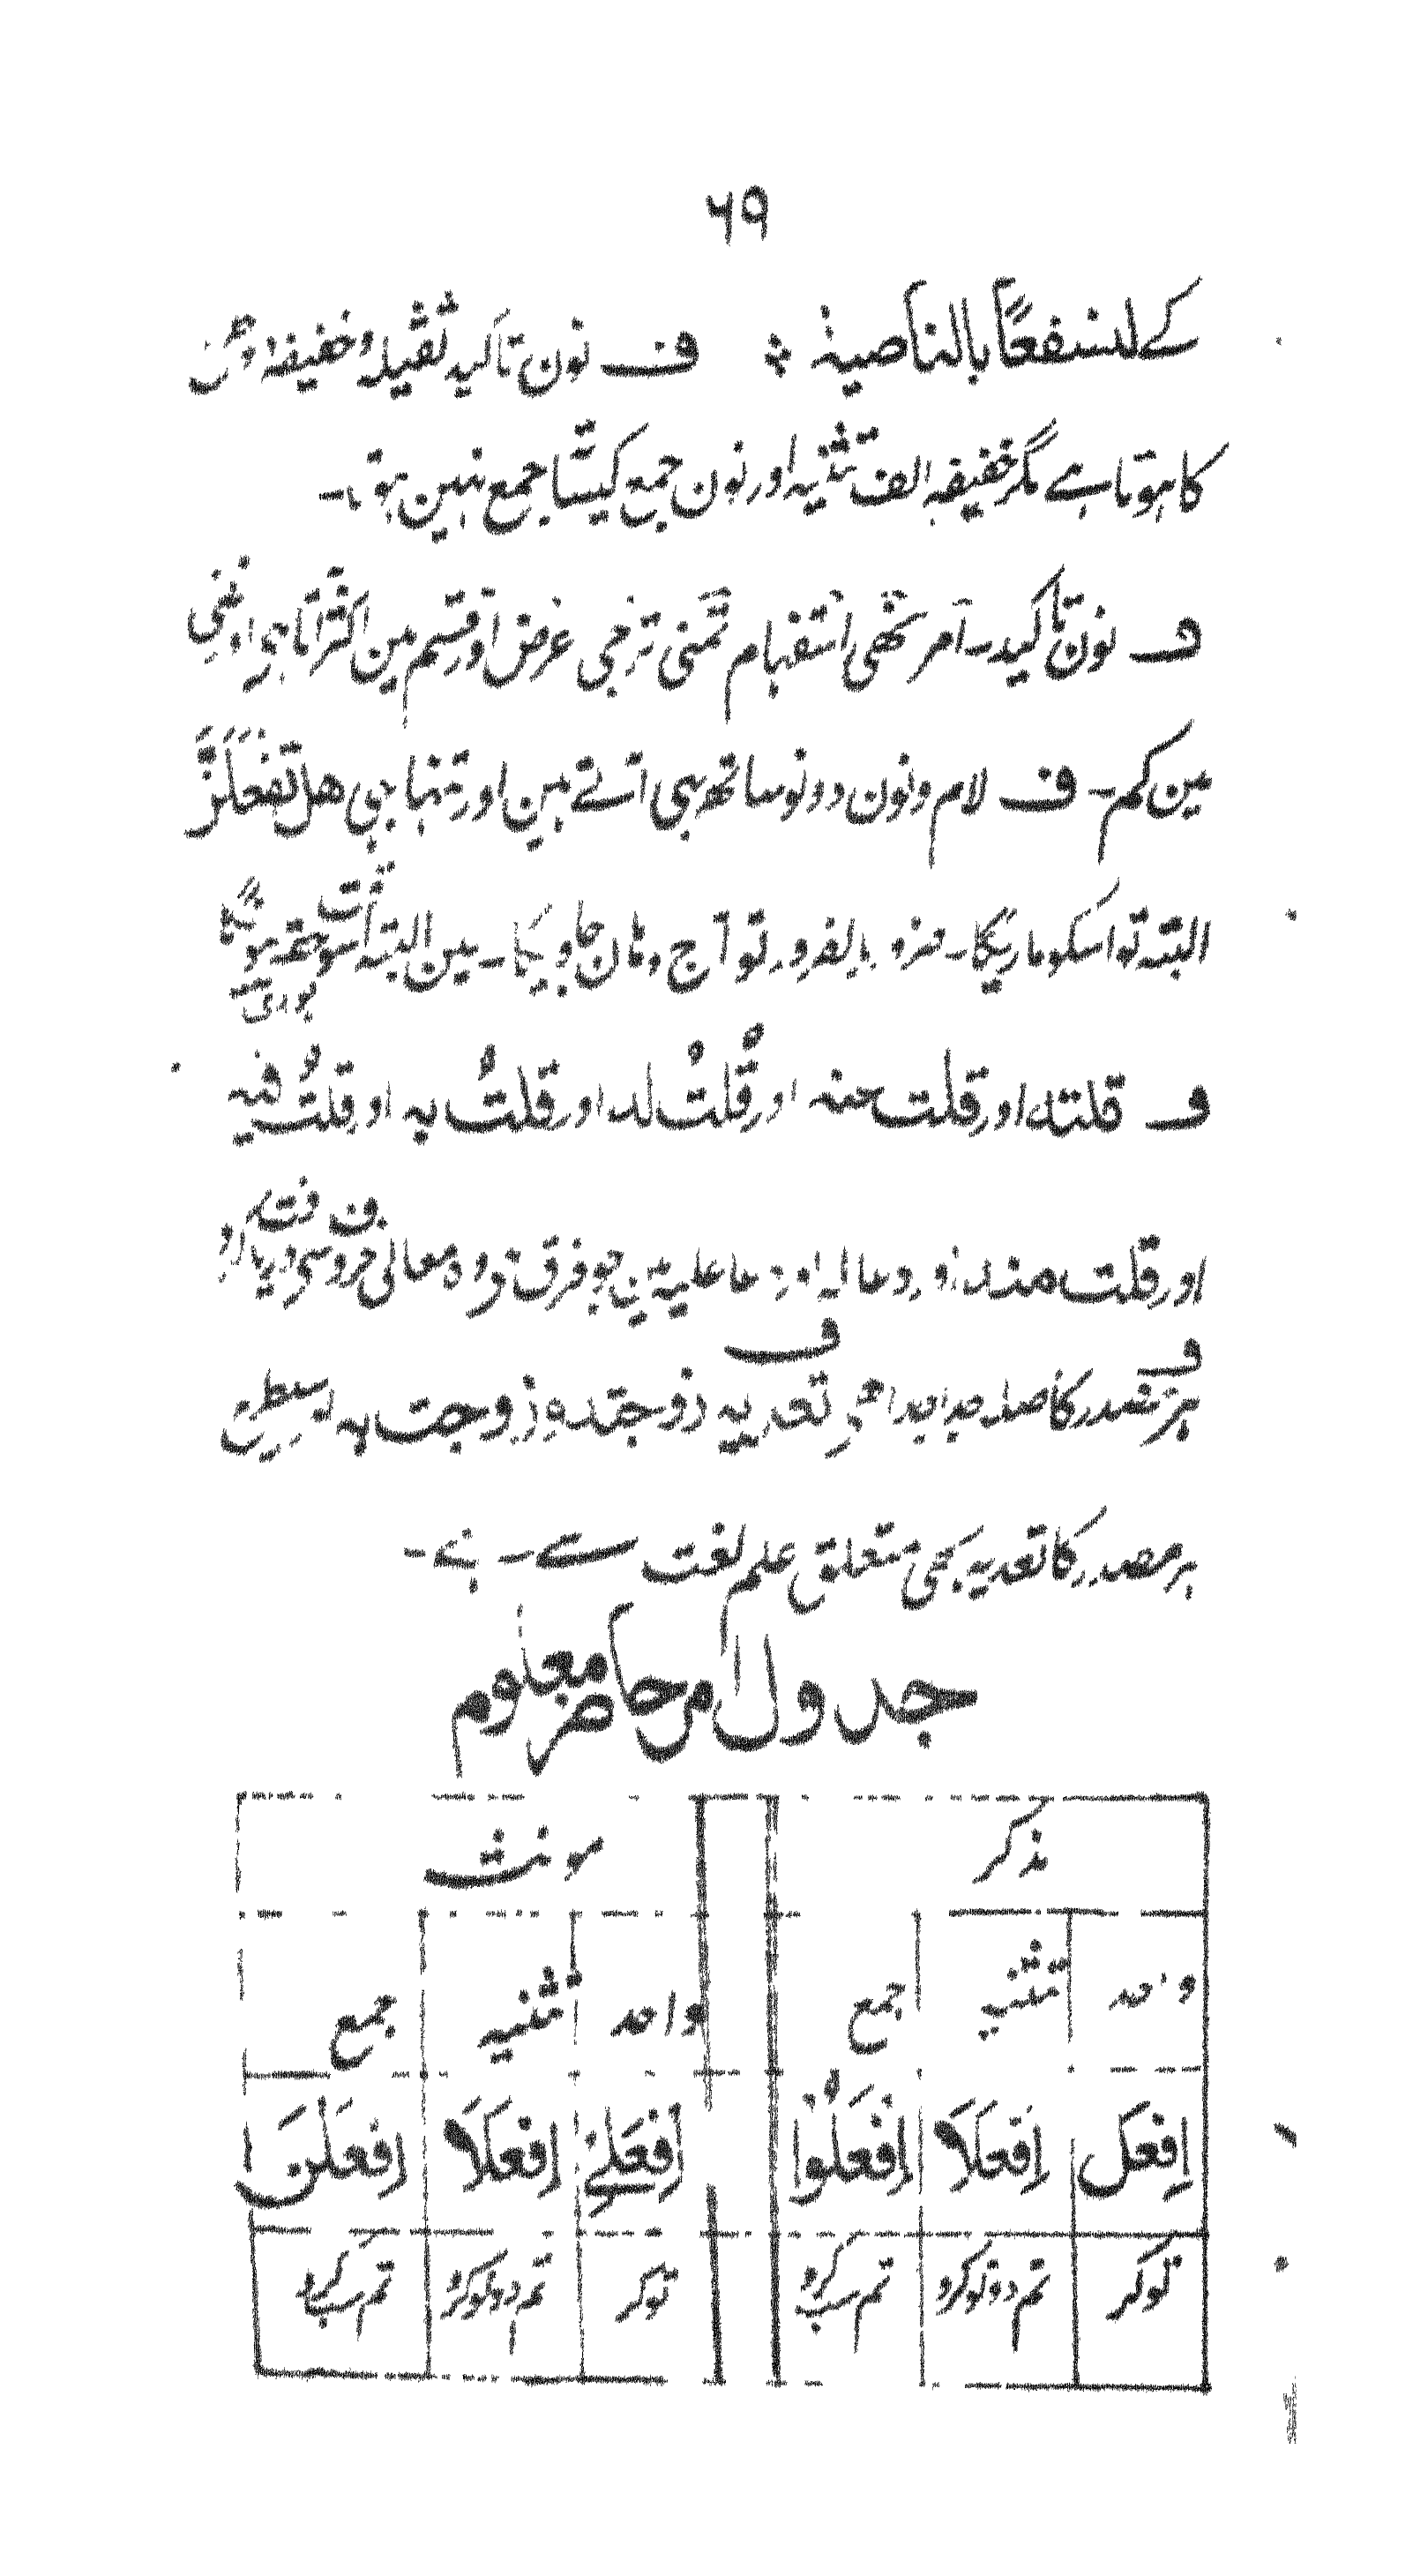 ۶۹
کے لنسفعًا بالناصیۃ ؞ ف نون تاکید ثقیلہ و خفیفہ
کا ہوتا ہے مگر خفیفہ الف تثنیہ اور نون جمع کیساتھ جمع نہین ہوتا۔
ف نون تاکید۔ امر نھی استفہام تمنی ترجی عرض اور قسم مین اکثر آتا ہی اور نفی
مین کم۔ ف لام و نون دونو ساتھ بہی آتے ہین اور تنہا بہی ھل تفعلنَّ
البتہ تو اسکو ماریگا۔ بالضرور تو آج وہان جاویگا۔ مین البتہ
ف قلتہ اور قلت عنہ اور قُلْتُ لہ اور قلتُ بہ اور قلتُ فیہ
اور قلت منہ اور دعا لہ اور دعا علیہ مین جو فرق ہی وہ معانی حروف سی
ف
ف
ہر مصدر کا صلہ جدا جدا ہی تعدیہ زوجتہ زوجت بہ اسیطرح
ہر مصدر کا تعدیہ بھی متعلق علم لغت سے۔ ہے۔
جدول امر حاضر معلوم
مذکر مونث
واحد تثنیہ جمع واحد تثنیہ جمع
اِفعَل اِفعَلَا اِفْعَلُوْا اِفعَلِیْ اِفعَلَا اِفعَلْنَ
تو کر تم دونو کرو تم سب کرو تو کر تم دونو کرو تم سب کرو